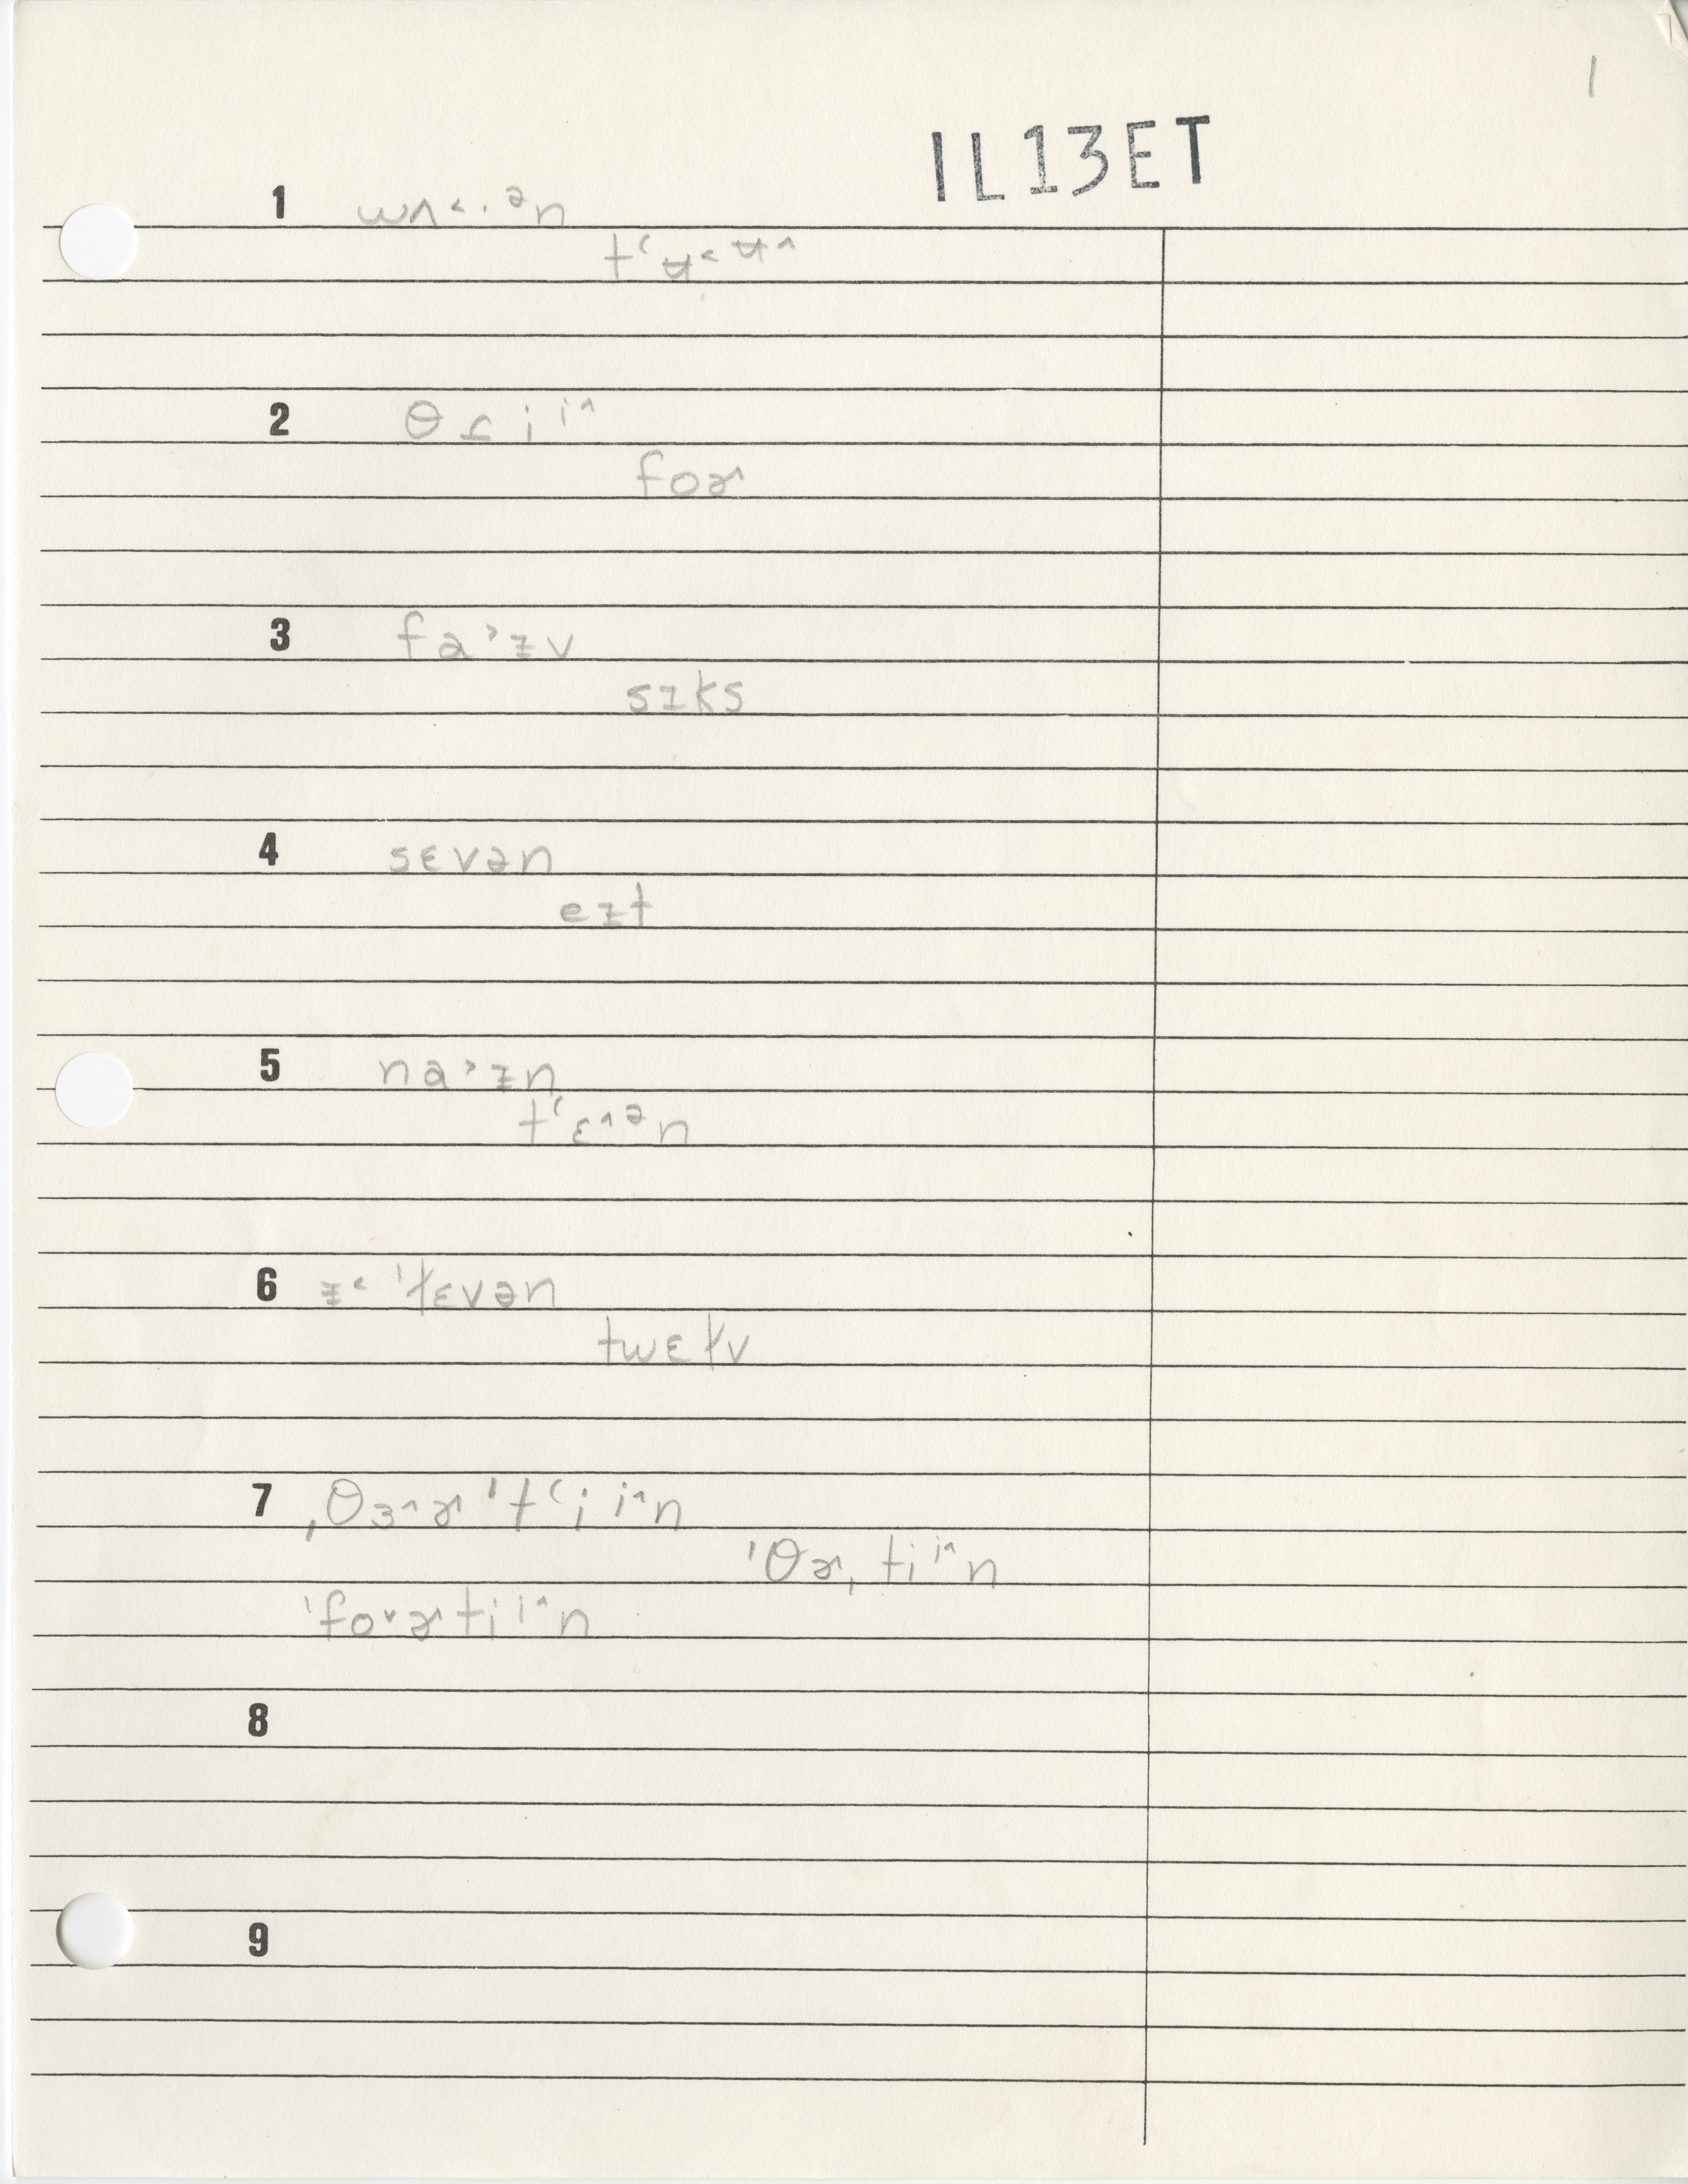 1
IL13ET
1 wʌ˂·ᵊn
tʻʉ˂ᵾ^
2 θɾiⁱ^
foɚ^
3 fa˃ɪv
sɪks
4 sɛvən
eɪt
5 na˃ɪn
tʻɛ^ᵊn
6 ɪ˂ˈɫɛvən
twɛɫv
7 ˌθɜ^ɚˈtʻiⁱ^n
ˈθɚˌtiⁱ^n
ˈfo˅ɚtiⁱ^n
8
9